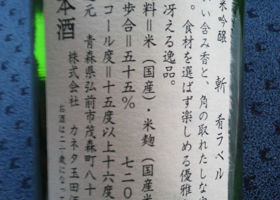 米吟醸 斬 肴ラベル
い含み香と、角の取れたしな
。食材を選ばず楽しめる優雅
冴える逸品。
料＝米（国産）・米麹（国産米
歩合＝五十五％ 七二〇
コール度＝十五度以上十六度
元 青森県弘前市茂森町八十
株式会社 カネタ玉田酒
本酒
お酒は二十歳になっ